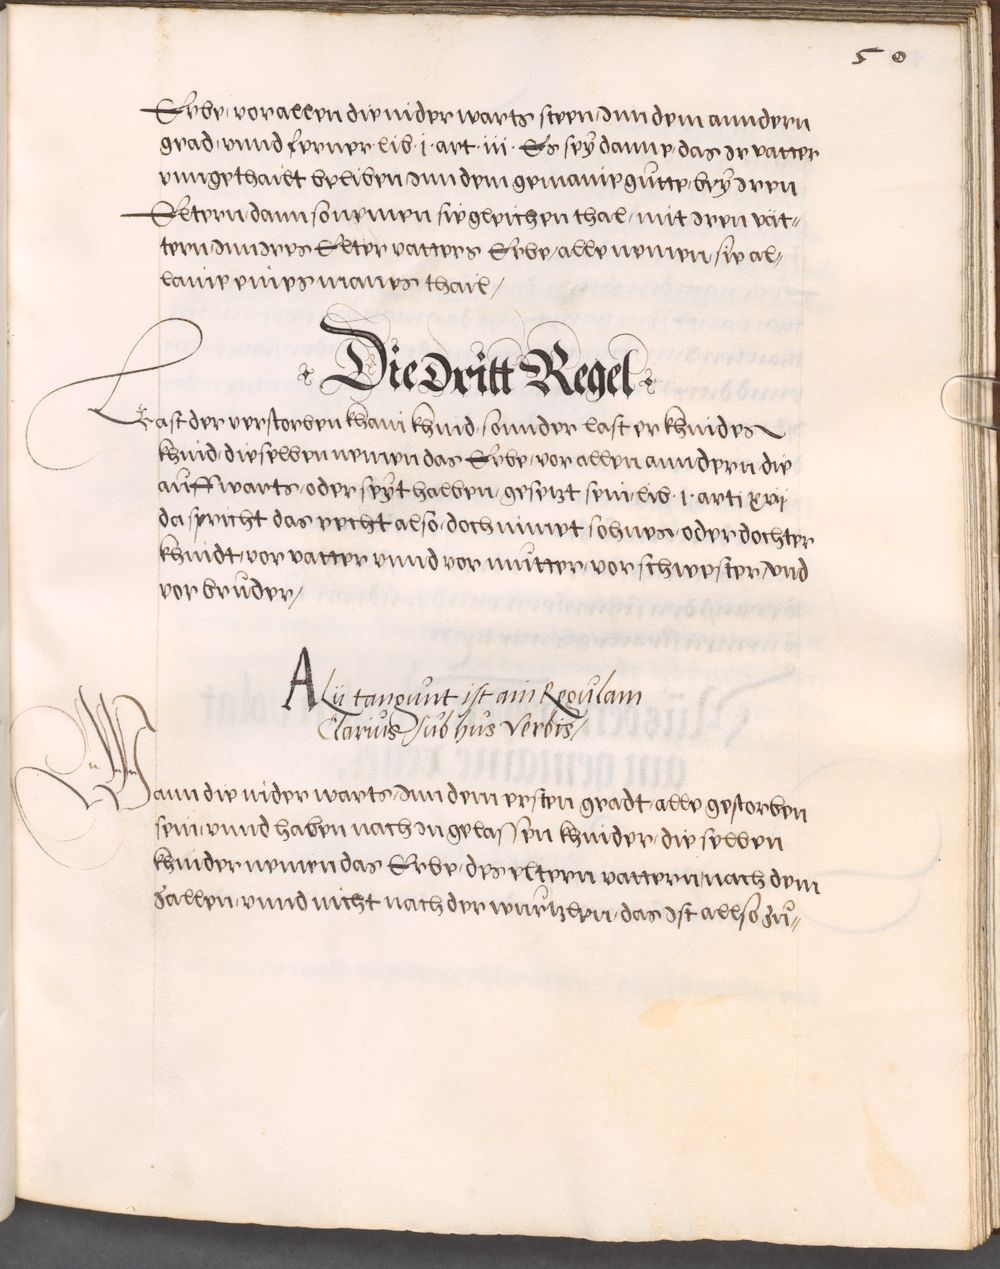 50
Erbe, vor allen die nider warts steen, Inn dem anndern
grad, vnnd ferner lib · j · art · iii · Es seÿ danne, das Ir vatter
vnngethailt beliben Inn dem gemaine gutte, beÿ Iren
Eltern, dann so nemen sie gleichen thal, mit Iren vät-
tern Inn Ires Elter vatters Erbe, alle nemen, sie al-
laine eines manes thail,
Die dritt Regel
Last der verstorben khain khind, sonnder last er khindes
khind, dieselben nemen das Erbe, vor allen anndern die
auffwarts, oder seÿthalben, gesetzt sein, lib · j · arti xvii
da spricht das recht also, doch nimet sohnes oder dochter
khindt, vor vatter vnnd vor mutter, vor schwester, vnd
vor bruder,
Alii tangunt istam Regulam
Clarius sub hiis verbis,
Wann die nider warts, Inn dem ersten gradt, alle gestorben
sein, vnnd haben nach In gelassen khinder, die selben
khinder nemen das Erbe, des eltern vattern, nach dem
Zallen, vnnd nicht nach der wurtzlen, das Ist allso zu-